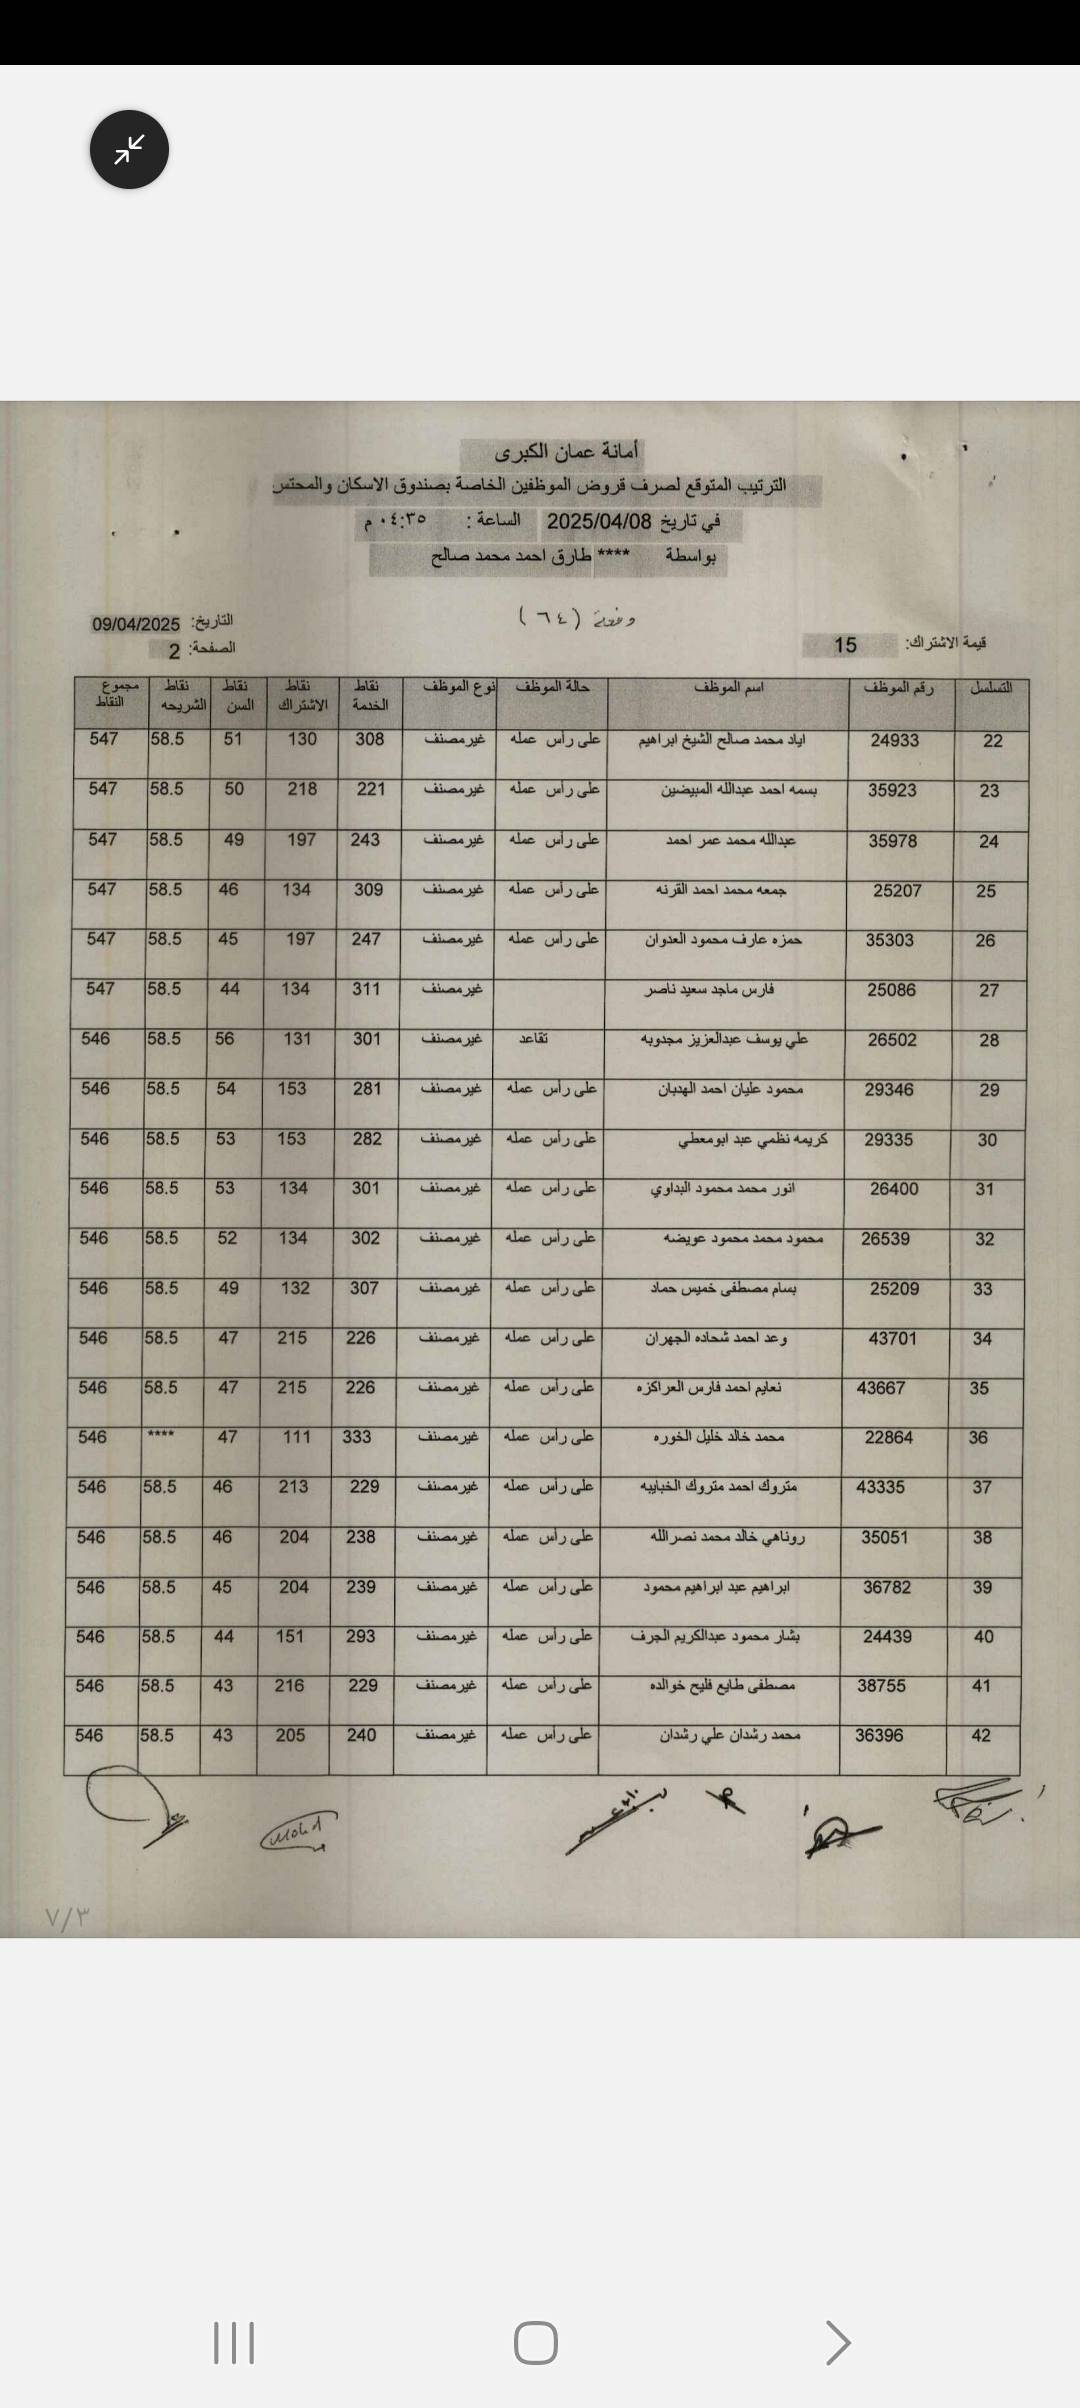 أمانة عمان الكبرى
الترتيب المتوقع لصرف قروض الموظفين الخاصة بصندوق الاسكان والمحتس
في تاريخ 2025/04/08 الساعة : ٠٤:٣٥ م
بواسطة **** طارق احمد محمد صالح
دفعة (٦٤)
التاريخ: 09/04/2025
قيمة الاشتراك: 15
الصفحة: 2
التسلسل رقم الموظف اسم الموظف حالة الموظف نوع الموظف نقاط الخدمة نقاط الاشتراك نقاط السن نقاط الشريحه مجموع النقاط
22 24933 اياد محمد صالح الشيخ ابراهيم على رأس عمله غير مصنف 308 130 51 58.5 547
23 35923 بسمه احمد عبدالله المبيضين على رأس عمله غير مصنف 221 218 50 58.5 547
24 35978 عبدالله محمد عمر احمد على رأس عمله غير مصنف 243 197 49 58.5 547
25 25207 جمعه محمد احمد القرنه على رأس عمله غير مصنف 309 134 46 58.5 547
26 35303 حمزه عارف محمود العدوان على رأس عمله غير مصنف 247 197 45 58.5 547
27 25086 فارس ماجد سعيد ناصر غير مصنف 311 134 44 58.5 547
28 26502 علي يوسف عبدالعزيز مجدوبه تقاعد غير مصنف 301 131 56 58.5 546
29 29346 محمود عليان احمد الهدبان على رأس عمله غير مصنف 281 153 54 58.5 546
30 29335 كريمه نظمي عبد ابومعطي على رأس عمله غير مصنف 282 153 53 58.5 546
31 26400 انور محمد محمود البداوي على رأس عمله غير مصنف 301 134 53 58.5 546
32 26539 محمود محمد محمود عويضه على رأس عمله غير مصنف 302 134 52 58.5 546
33 25209 بسام مصطفى خميس حماد على رأس عمله غير مصنف 307 132 49 58.5 546
34 43701 وعد احمد شحاده الجهران على رأس عمله غير مصنف 226 215 47 58.5 546
35 43667 نعايم احمد فارس العراكزه على رأس عمله غير مصنف 226 215 47 58.5 546
36 22864 محمد خالد خليل الخوره على رأس عمله غير مصنف 333 111 47 **** 546
37 43335 متروك احمد متروك الخبايبه على رأس عمله غير مصنف 229 213 46 58.5 546
38 35051 روناهي خالد محمد نصرالله على رأس عمله غير مصنف 238 204 46 58.5 546
39 36782 ابراهيم عبد ابراهيم محمود على رأس عمله غير مصنف 239 204 45 58.5 546
40 24439 بشار محمود عبدالكريم الجرف على رأس عمله غير مصنف 293 151 44 58.5 546
41 38755 مصطفى طايع فليح خوالده على رأس عمله غير مصنف 229 216 43 58.5 546
42 36396 محمد رشدان علي رشدان على رأس عمله غير مصنف 240 205 43 58.5 546
Mohd
٧/٣